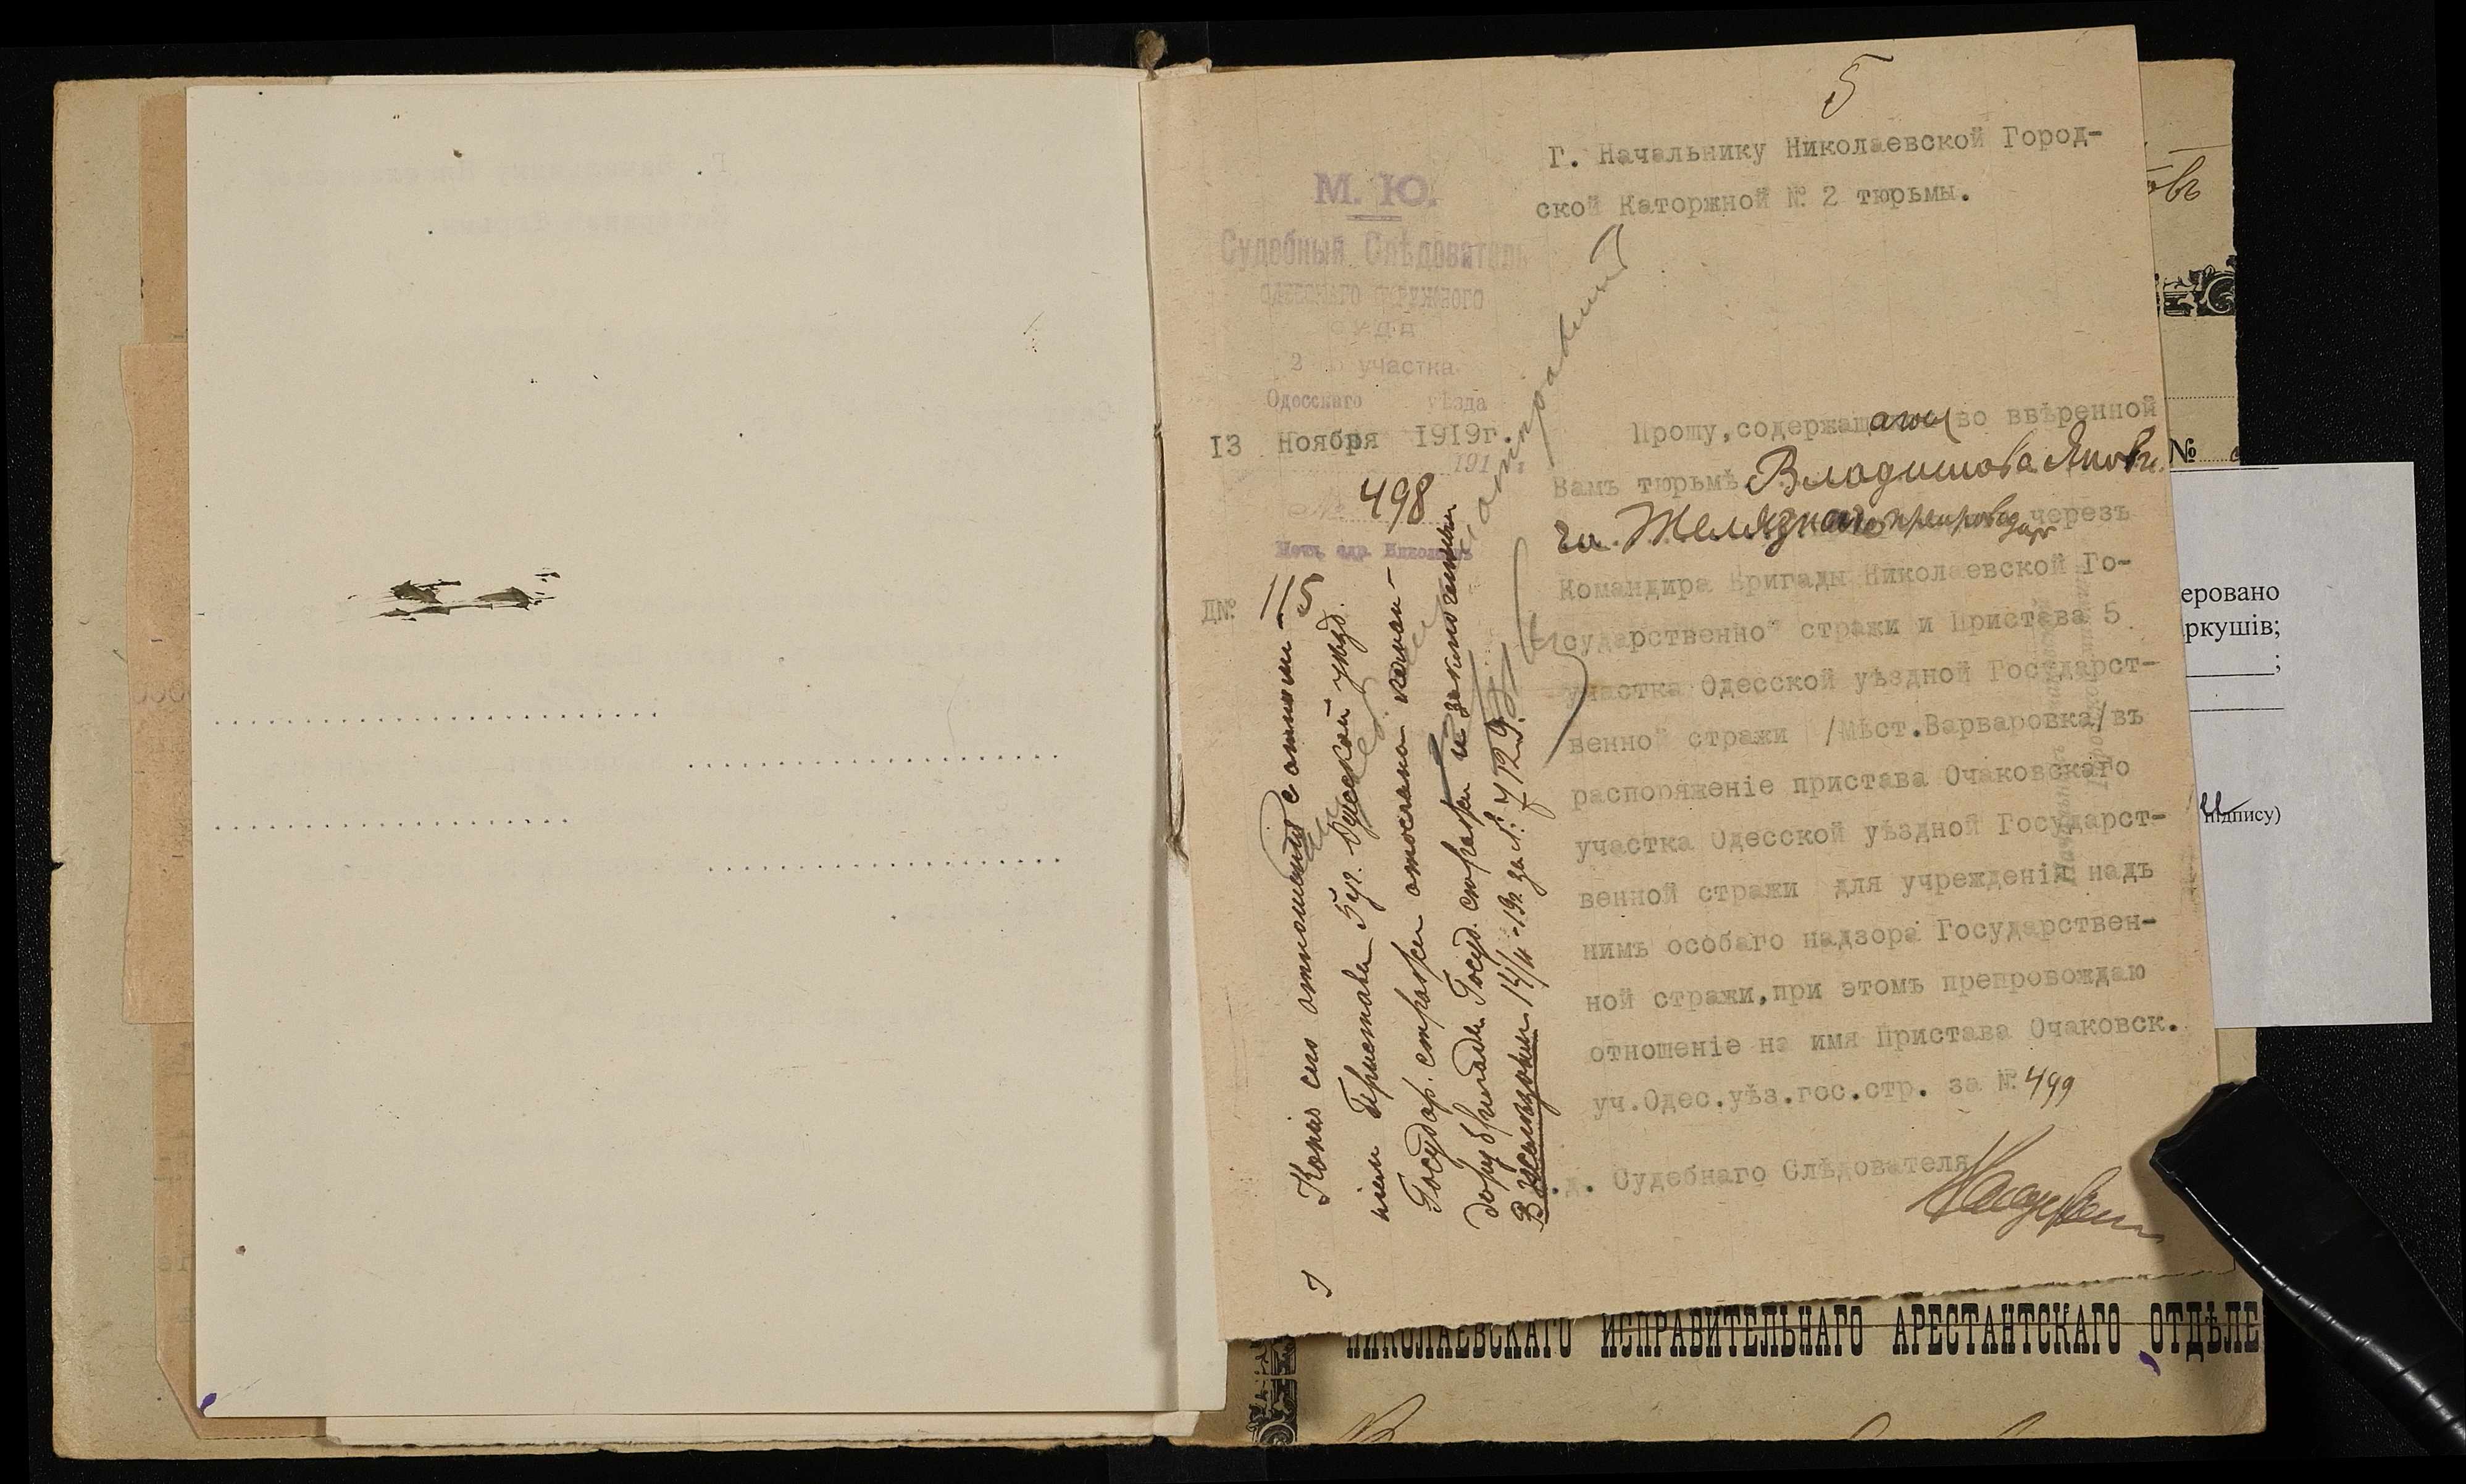 5
Г. Начальнику Николаевской Город-
ской Каторжной № 2 тюрьмы.
М. Ю.
Судебный Слѣдователь
ОДЕССКАГО ОКРУЖНОГО
СУДА
2 участка
Одесскаго уѣзда
13 Ноября 1919г.
191 г.
№ 498
Почт. адр. Николаевъ
Д№
Прошу, содержащагося во ввѣренной
Вамъ тюрьмѣ Владислава Яновъ
Желязнаго препровод через
Командира Бригады Николаевской Го-
сударственной стражи и Пристава 5
участка Одесской уѣздной Государст-
венной стражи /Мѣст.Варваровка/ въ
распоряженіе пристава Очаковскаго
участка Одесской уѣздной Государст-
венной стражи для учрежденія надъ
нимъ особаго надзора Государствен-
ной стражи, при этомъ препровождаю
отношеніе на имя Пристава Очаковск.
уч.Одес.уѣз.гос.стр. за № 499
.д. Судебнаго Слѣдователя
Копия сего отношения с отноше-
нием Пристава 5 уч. Одесской уезд.
Государ. стражи отослана коман-
диру бригады Госуд. стражи и заключенный
14/11-19г. за № 7729.
НИКОЛАЕВСКАГО ИСПРАВИТЕЛЬНАГО АРЕСТАНТСКАГО ОТДѢЛЕ
овъ
№
еровано
ркушів;
підпису)